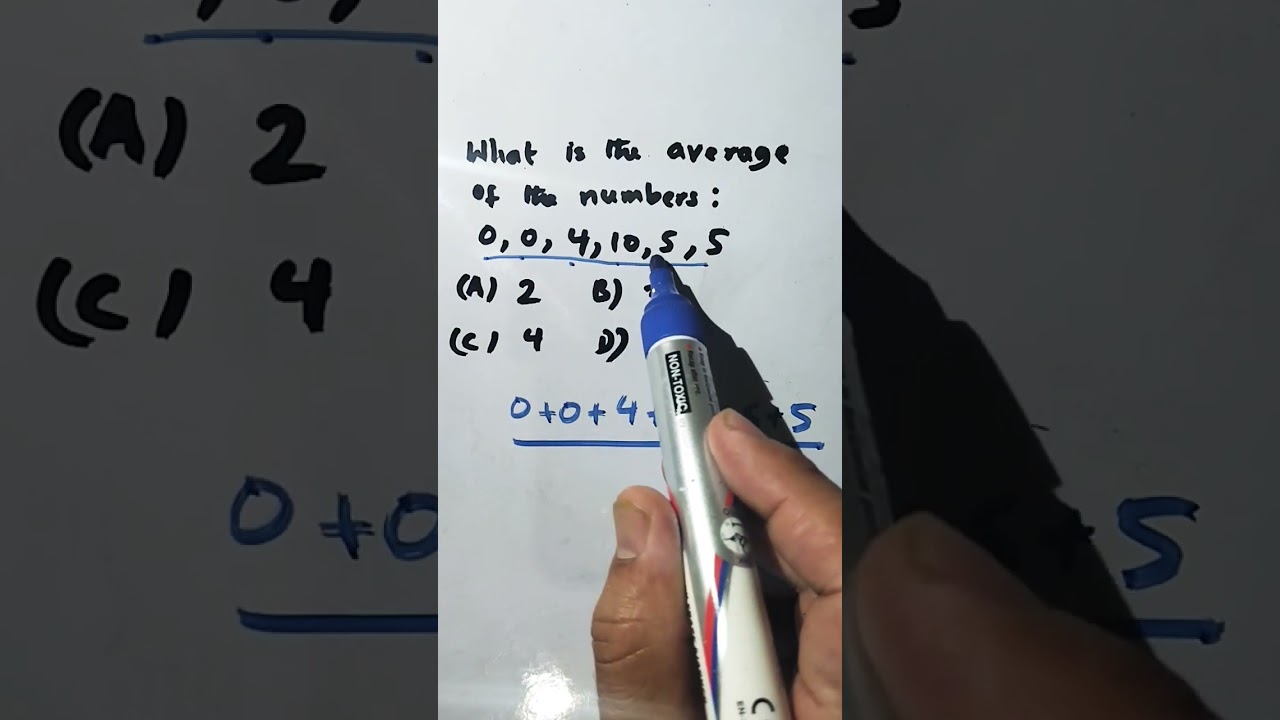 What is the average
of the numbers:
0, 0, 4, 10, 5, 5
(A) 2 B)
(C) 4 D)
0+0+4+ +5
NON-TOXIC